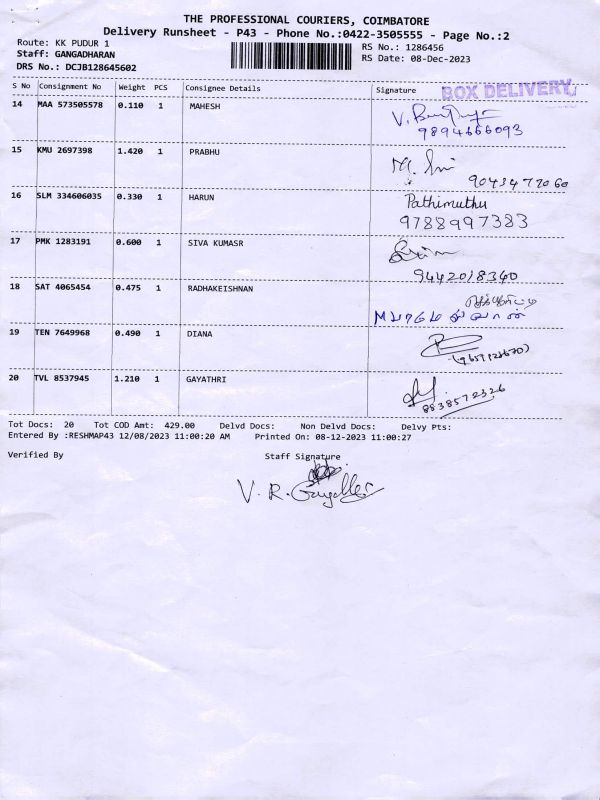 THE PROFESSIONAL COURIERS, COIMBATORE
Delivery Runsheet - P43 - Phone No.:0422-3505555 - Page No.:2
Route: KK PUDUR 1
RS No.: 1286456
Staff: GANGADHARAN
RS Date: 08-Dec-2023
DRS No.: DCJB128645602
S No Consignment No Weight PCS Consignee Details Signature BOX DELIVERY
14 MAA 573505578 0.110 1 MAHESH
9894666093
15 KMU 2697398 1.420 1 PRABHU
9043472060
16 SLM 334606035 0.330 1 HARUN Pathimuthu
9788997383
17 PMK 1283191 0.600 1 SIVA KUMASR
9442018340
18 SAT 4065454 0.475 1 RADHAKEISHNAN
19 TEN 7649968 0.490 1 DIANA
20 TVL 8537945 1.210 1 GAYATHRI
8838572326
Tot Docs: 20 Tot COD Amt: 429.00 Delvd Docs: Non Delvd Docs: Delvy Pts:
Entered By :RESHMAP43 12/08/2023 11:00:20 AM Printed On: 08-12-2023 11:00:27
Verified By Staff Signature
V. R.